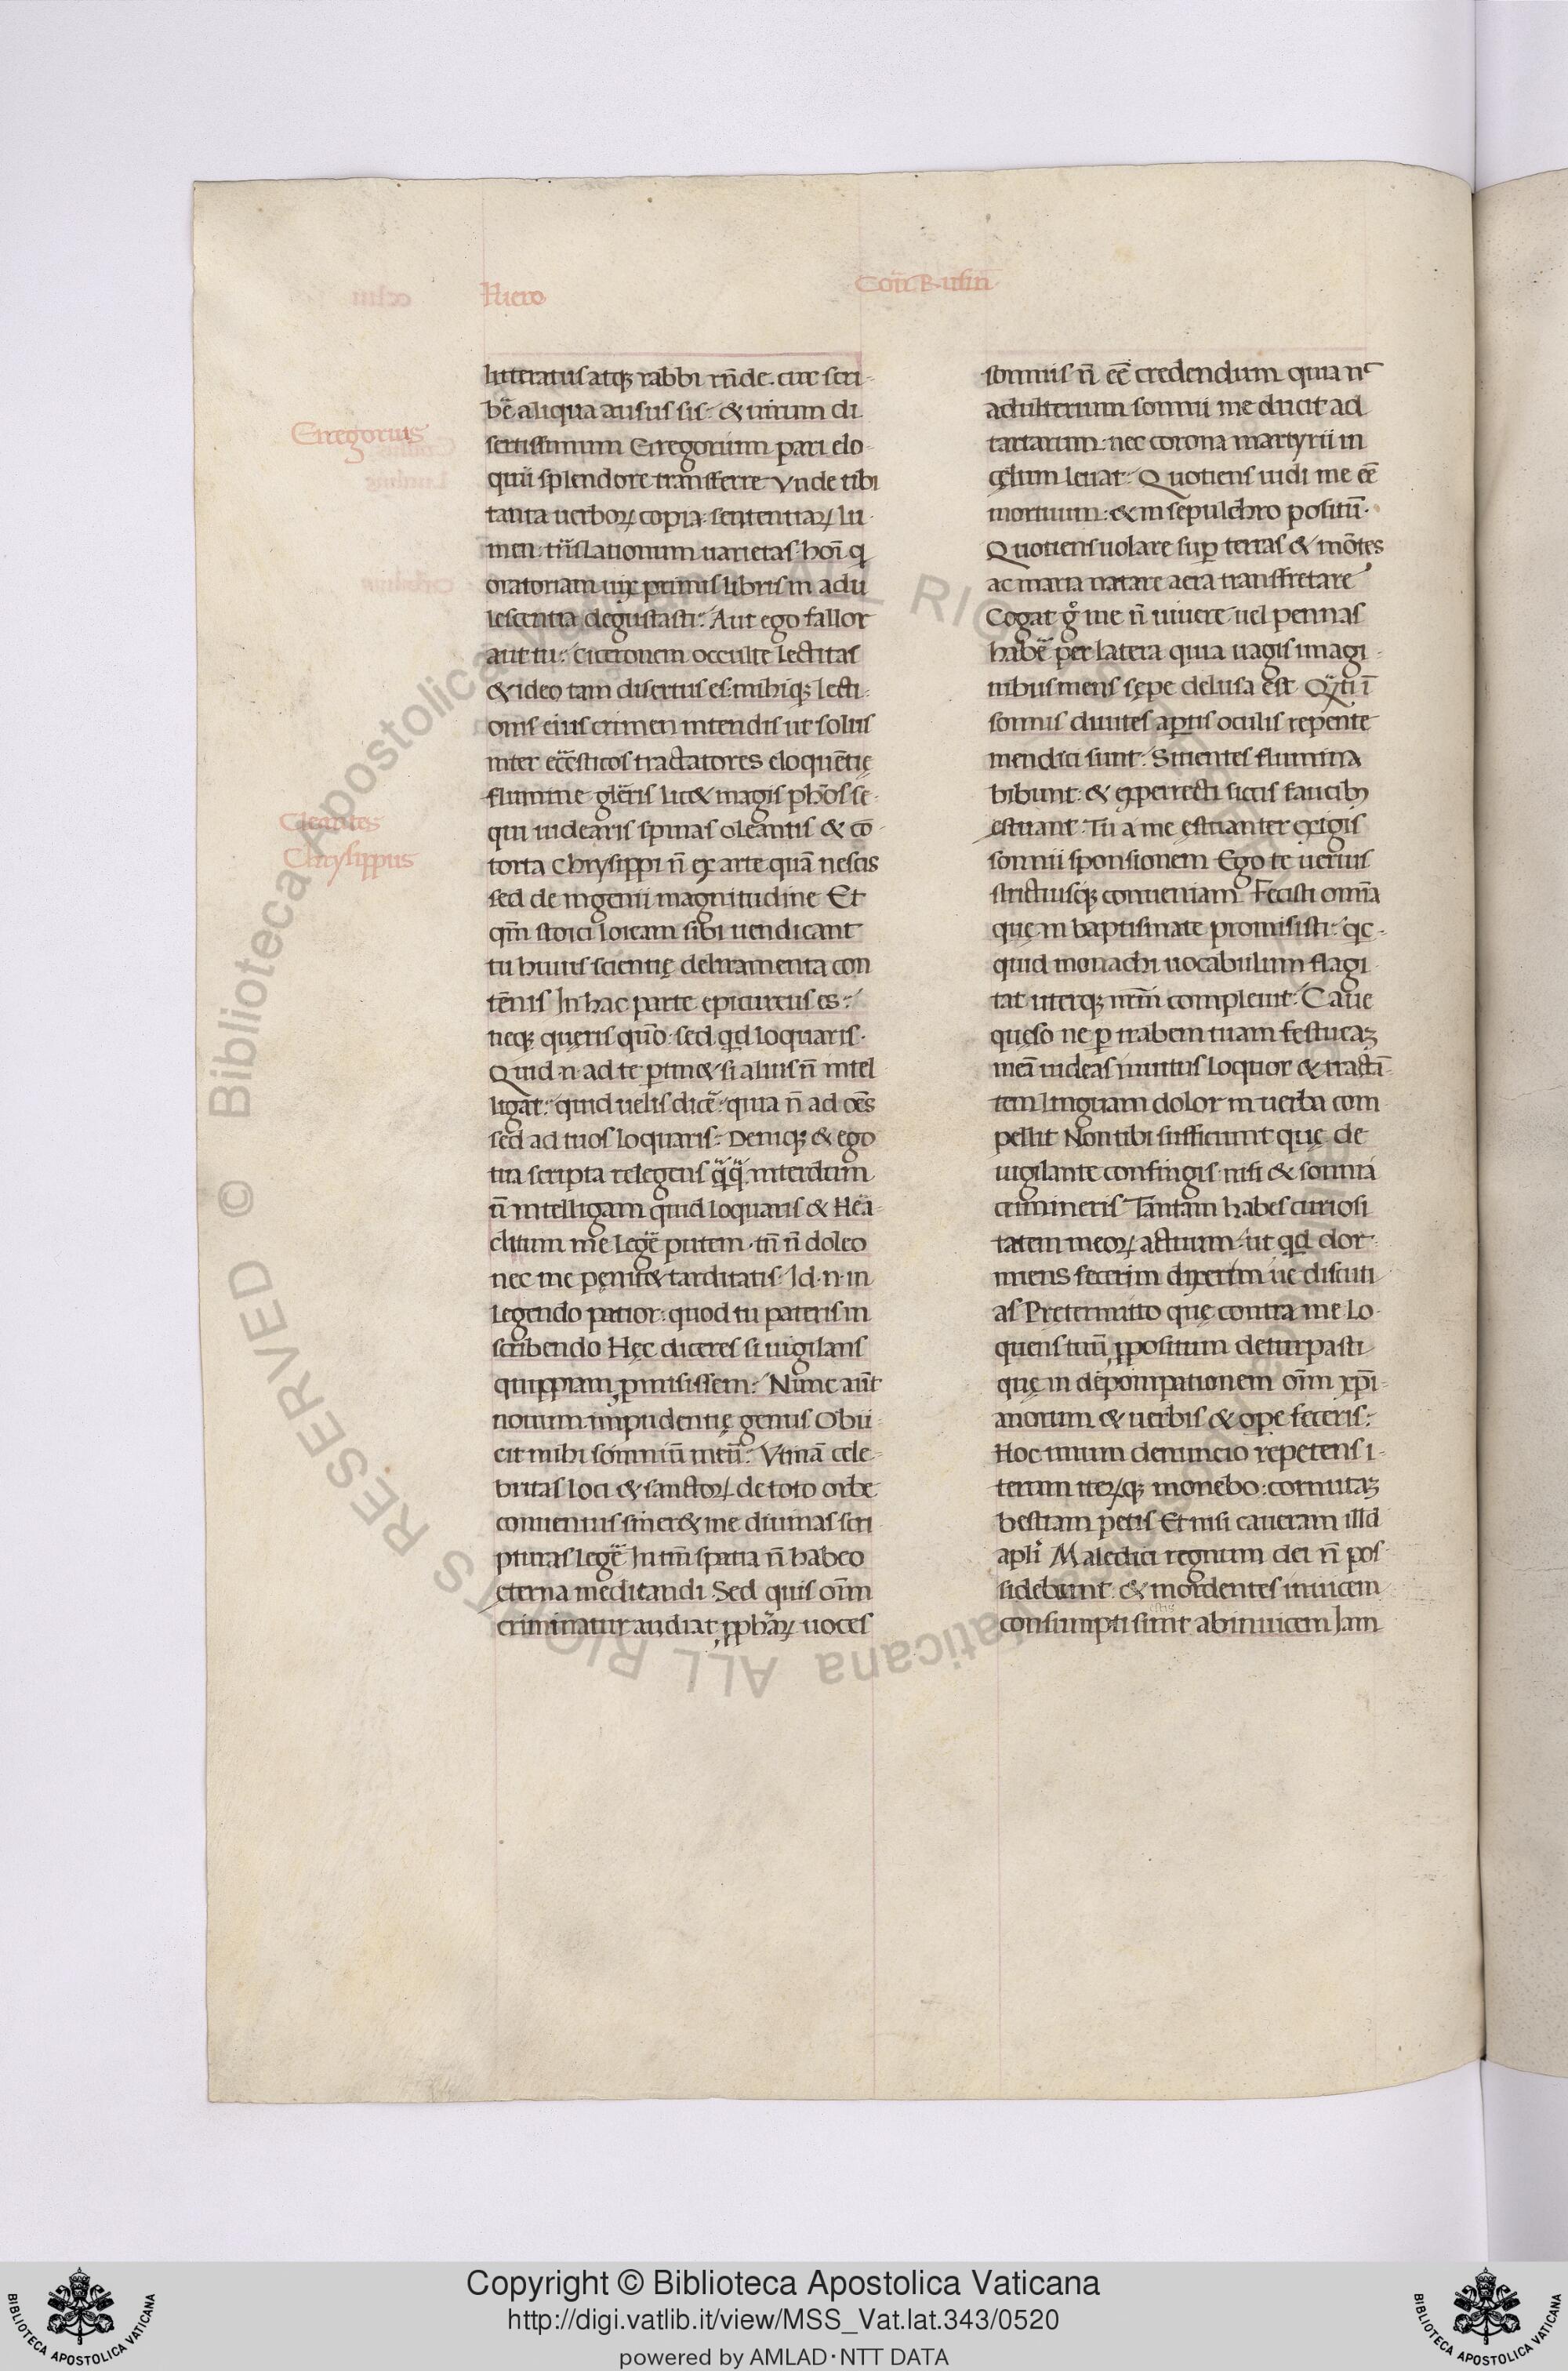 Hiero
Cont Rufin
Gregorius
Cleantes
Chrysippus
litteratus atq; rabbi rñde. cur scri
bẽ aliqua ausus sis: & uirum di
sertissimum Gregorium pari elo
quii splendore transferre Vnde tibi
tanta uerboꝝ copia: sententiaꝝ lu
men: trãslationum uarietas: hoĩ q
oratoriam uix primis libris in adu
lescentia degustasti: Aut ego fallor
aut tu: ciceronem occulte lectitas
& ideo tam disertus es: mihiq; lecti
onis eius crimen intendis ut solus
inter ecc̃esticos tractatores eloquẽtię
flumine glẽris lic& magis ph̃os se
qui uidearis spinas cleantis & cõ
torta Chrysippi ñ ex arte quã nescis
sed de ingenii magnitudine Et
qm̃ stoici loicam sibi uendicant
tu huius scientię deliramenta con
tẽnis In hac parte epicureus es:
neq; quęris quõ: sed qd loquaris.
Quid n. ad te ptin& si alius ñ intel
ligat: quid uelis dicẽ: quia ñ ad oẽs
sed ad tuos loquaris: Deniq; & ego
tua scripta relegens q̃q̃ interdum
ñ intelligam quid loquaris & Hẽa
clitum me legẽ putem. tñ ñ doleo
nec me pęnit& tarditatis. Id. n. in
legendo patior: quod tu pateris in
scribendo Hęc diceres si uigilans
quippiam ꝓmisissem: Nunc aũt
nouum impudentię genus Obii
cit mihi somniũ meũ: Vtinã cele
britas loci & sanctoꝝ de toto orbe
conuenius siner& me diuinas scri
pturas legẽ In tm̃ spatia ñ habeo
eterna meditandi. Sed quis om̃
criminatur audiat ꝓph̃aꝝ uoces
somnis ñ eẽ credendum quia nc
adulterium somni me ducit ad
tartarum: nec corona martyrii in
cęlum leuat: Quotiens uidi me eẽ
mortuum: & in sepulchro positũ.
Quotiens uolare sup terras & mõtes
ac maria natare aera transfretare
Cogat g̊ me ñ uiuere uel pennas
habẽ per latera quia uagis imagi
nibus mens sępe delusa est. Qãti ĩ
somnis diuites aptis oculis repente
mendici sunt: Sitientes flumina
bibunt: & experrecti siccis faucib;
ęstuant. Tu a me ęstuanter exigis
somnii sponsionem Ego te uerius
strictiusq; conueniam Fecisti omĩa
quę in baptismate promisisti: qc
quid monachi uocabulum flagi
tat uterq; nrm̃ compleuit: Caue
quęso ne p trabem tuam festucaꝫ
meã uideas inuitus loquor & tractã
tem linguam dolor in uerba com
pellit Non tibi sufficiunt quę de
uigilante confingis nisi & somnia
crimineris Tantam habes curiosi
tatem meoꝝ actuum: ut qd dor
miens fecerim dixerim ue discuti
as Prętermitto quę contra me lo
quens tuũ ꝓpositum deturpasti
quę in depompationem om̃ xpĩ
anorum & uerbis & ope feceris:
Hoc unum denuncio repetens i
terum iteꝝq; monebo: cornutaꝫ
bestiam petis Et nisi cauerem illd
apli Maledici regnum dei ñ pos
sidebunt: & mordentes inuicem
consumpti sunt abinuicem Iam
Copyright © Biblioteca Apostolica Vaticana
http://digi.vatlib.it/view/MSS_Vat.lat.343/0520
powered by AMLAD·NTT DATA